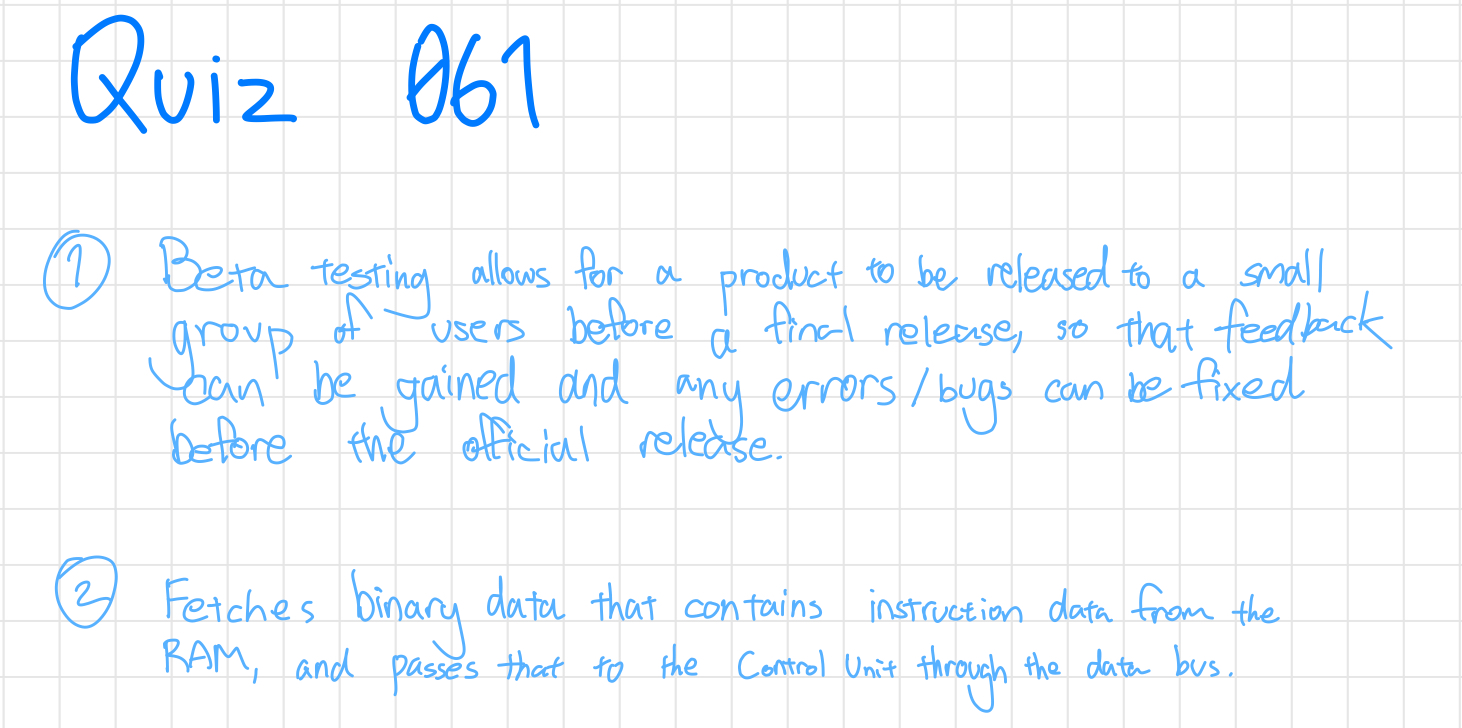 Quiz 061
① Beta testing allows for a product to be released to a small
group of users before a final release, so that feedback
can be gained and any errors/bugs can be fixed
before the official release.
② Fetches binary data that contains instruction data from the
RAM, and passes that to the Control Unit through the data bus.